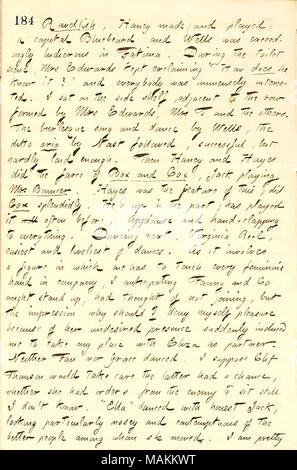 184
Rawdlish, Haney made, and played,
a capital Bluebeard and Wells was exceed-
ingly ludicrous in Fatima. During the toilet
scene, Mrs Edwards kept exclaiming "How does he
know it?" and everybody was immensely interes-
ted. I sat on the side shelf, adjacent to the row
formed by Mrs Edwards, Mrs T and the others.
The burlesque song and dance by Wells, the
ditto aria by Nast followed, successful, but
hardly loud enough. Then Haney and Hayes
did the farce of Box and Cox, Jack playing
Mrs Bouncer. Hayes was the feature of this; did
Cox splendidly. He's up in the part; has played
it often before. Applause and hand-clapping
to everything. Dancing next, Virginia Reel,
easiest and liveliest of dances. As it involves
a figure in which one has to touch every feminine
hand in company, I anticipating Fanny and Co
might stand up, had thought of not joining, but
the impression why should I deny myself pleasure
because of her undesired presence suddenly induced
me to take my place with Eliza as partner.
Neither Fan nor Grace danced. I suppose Clif
Thomson would take care the latter had a chance,
whether she had orders from the enemy to sit still
I don't know. "Ella" danced with honest Jack,
looking particularly nosey and contemptuous of the
better people among whom she moved. I am pretty
alamy
Image ID: MAKKWT
www.alamy.com